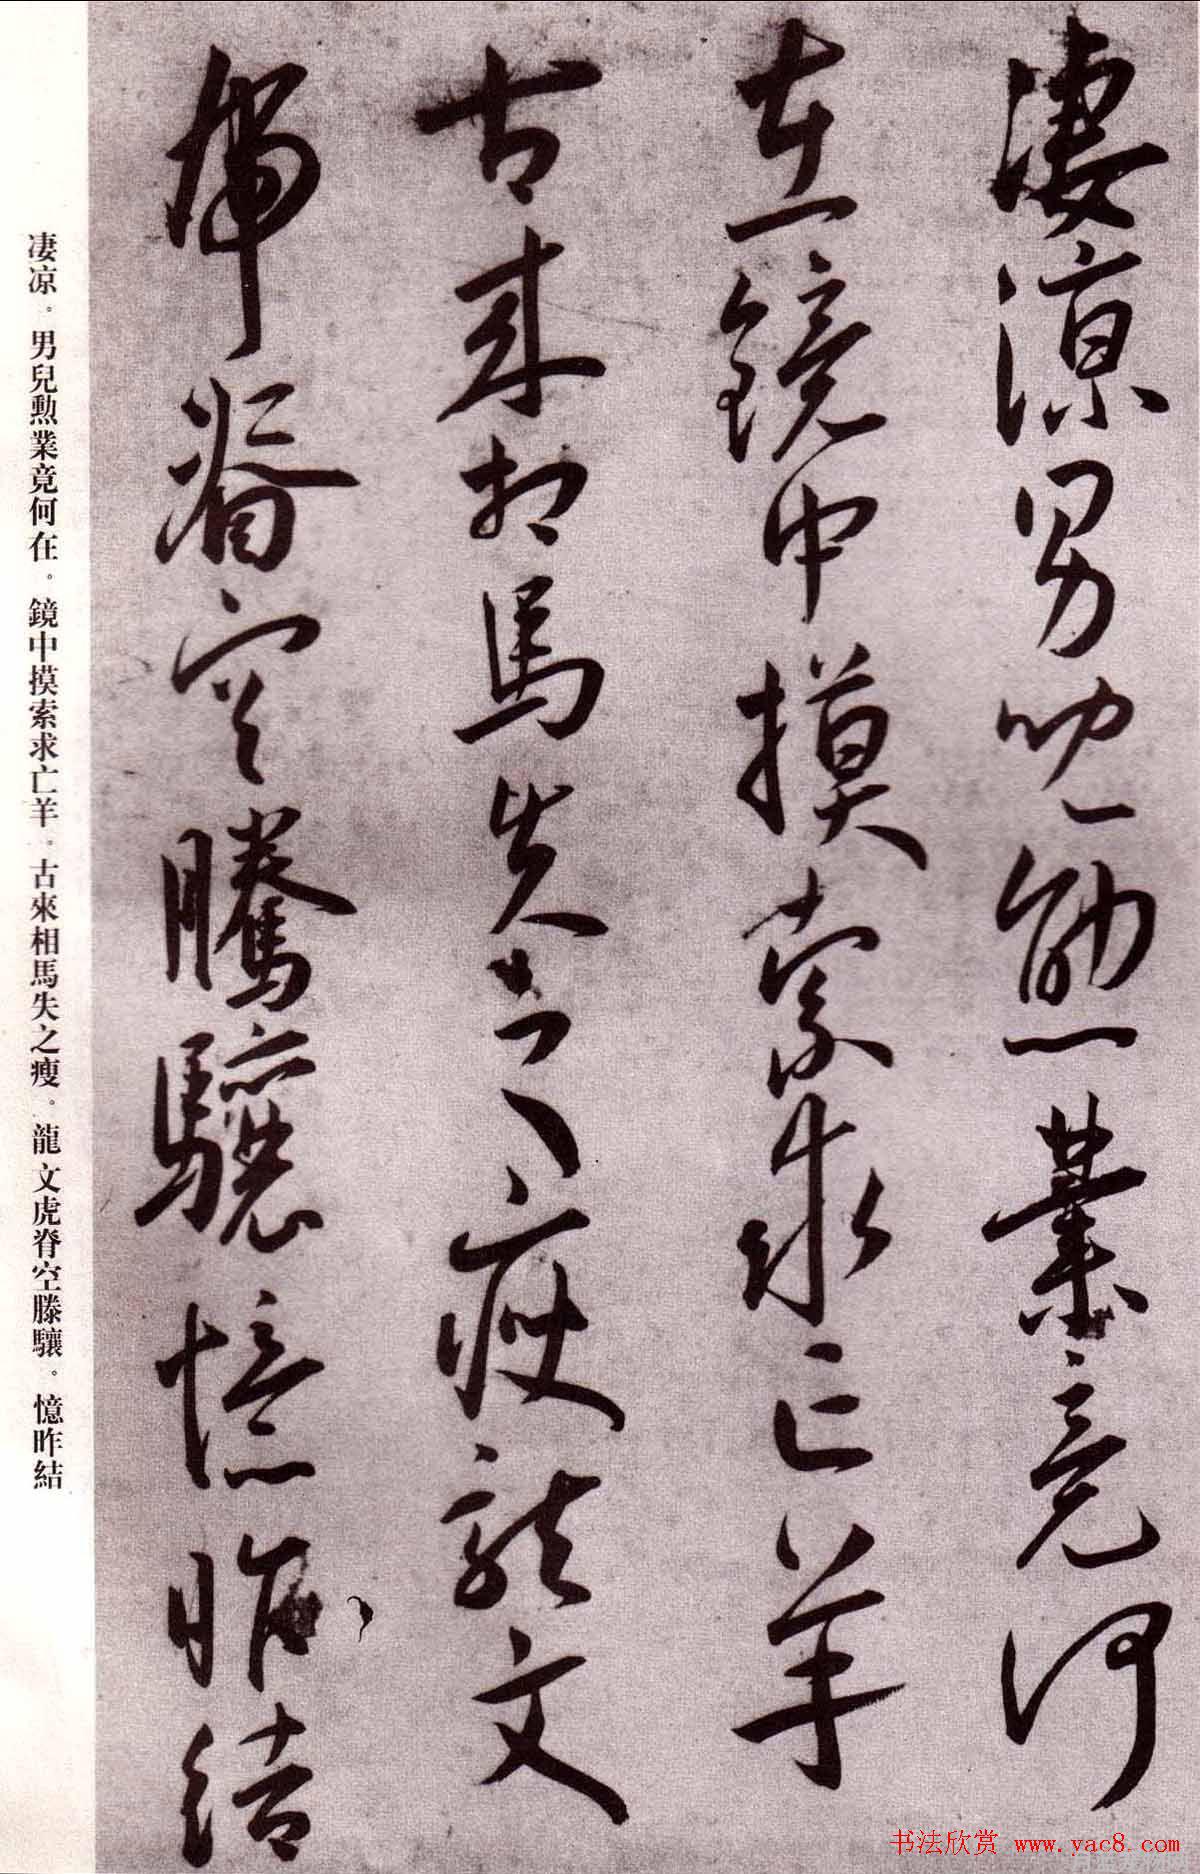 淒涼男兒勳業竟何
在鏡中摸索求亡羊
古來相馬失之瘦龍文
虎脊空騰驤憶昨結
凄凉。男兒勲業竟何在。鏡中摸索求亡羊。古來相馬失之瘦。龍文虎脊空騰驤。憶昨結
书法欣赏 www.yac8.com